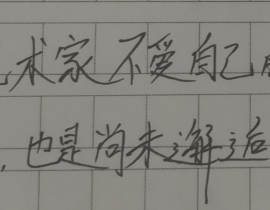 术家不爱自己
，也是尚未邂逅